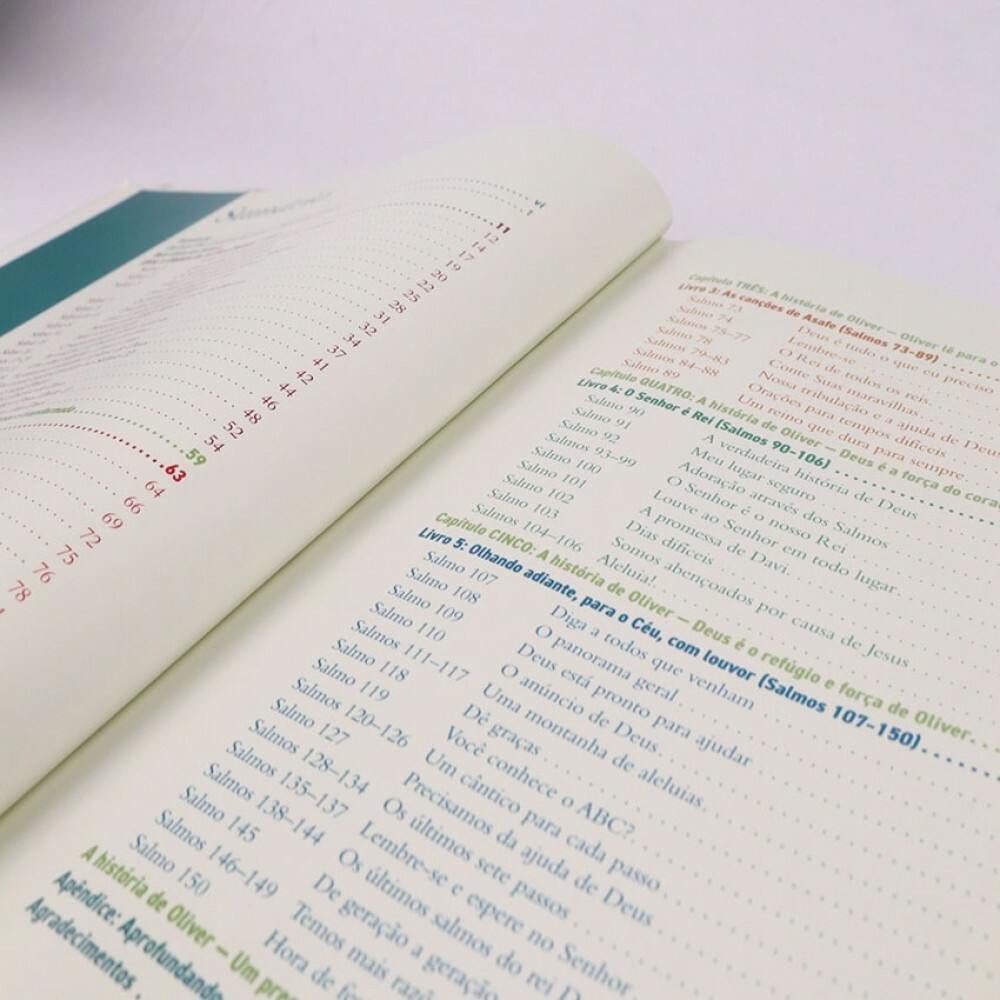 Sumário
vi
1
11
12
14
17
19
20
22
25
28
31
32
34
37
41
42
44
46
48
52
54
59
63
64
66
69
72
75
76
78
Capítulo TRÊS: A história de Oliver — Oliver lê para o
Livro 3: As canções de Asafe (Salmos 73–89)
Salmo 73 Deus é tudo o que eu preciso
Salmo 74 Lembre-se
Salmos 75–77 O Rei de todos os reis
Salmo 78 Conte Suas maravilhas
Salmos 79–83 Nossa tribulação e a ajuda de Deus
Salmos 84–88 Orações para tempos difíceis
Salmo 89 Um reino que dura para sempre
Capítulo QUATRO: A história de Oliver — Deus é a força do cora
Livro 4: O Senhor é Rei (Salmos 90–106)
Salmo 90 A verdadeira história de Deus
Salmo 91 Meu lugar seguro
Salmo 92 Adoração através dos Salmos
Salmos 93–99 O Senhor é o nosso Rei
Salmo 100 Louve ao Senhor em todo lugar
Salmo 101 A promessa de Davi
Salmo 102 Dias difíceis
Salmo 103 Somos abençoados por causa de Jesus
Salmos 104–106 Aleluia!
Capítulo CINCO: A história de Oliver — Deus é o refúgio e força de Oliver
Livro 5: Olhando adiante, para o Céu, com louvor (Salmos 107–150)
Salmo 107 Diga a todos que venham
Salmo 108 O panorama geral
Salmo 109 Deus está pronto para ajudar
Salmo 110 O anúncio de Deus
Salmos 111–117 Uma montanha de aleluias
Salmo 118 Dê graças
Salmo 119 Você conhece o ABC?
Salmos 120–126 Um cântico para cada passo
Salmo 127 Precisamos da ajuda de Deus
Salmos 128–134 Os últimos sete passos
Salmos 135–137 Lembre-se e espere no Senhor
Salmos 138–144 Os últimos salmos do rei D
Salmo 145 De geração a geração
Salmos 146–149 Temos mais razõ
Salmo 150 Hora de fe
A história de Oliver — Um pre
Apêndice: Aprofundando
Agradecimentos